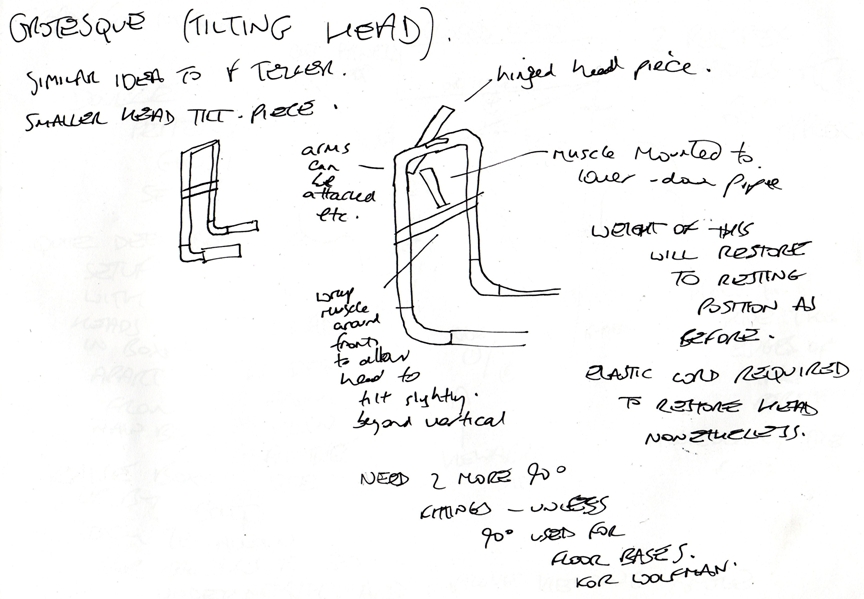 GROTESQUE (TILTING HEAD).
SIMILAR IDEA TO F TELLER.
SMALLER HEAD TILT-PIECE.
hinged head piece.
arms
can
be
attached
etc.
muscle mounted to
lower-down
WEIGHT OF THIS
WILL RESTORE
TO RESTING
POSITION AS
BEFORE.
wrap
muscle
around
front
to allow
head to
tilt slightly.
beyond vertical
ELASTIC CORD REQUIRED
TO RESTORE HEAD
NONETHELESS.
NEED 2 MORE 90°
FITTINGS - UNLESS
90° USED FOR
FLOOR BASES.
FOR WOLFMAN.